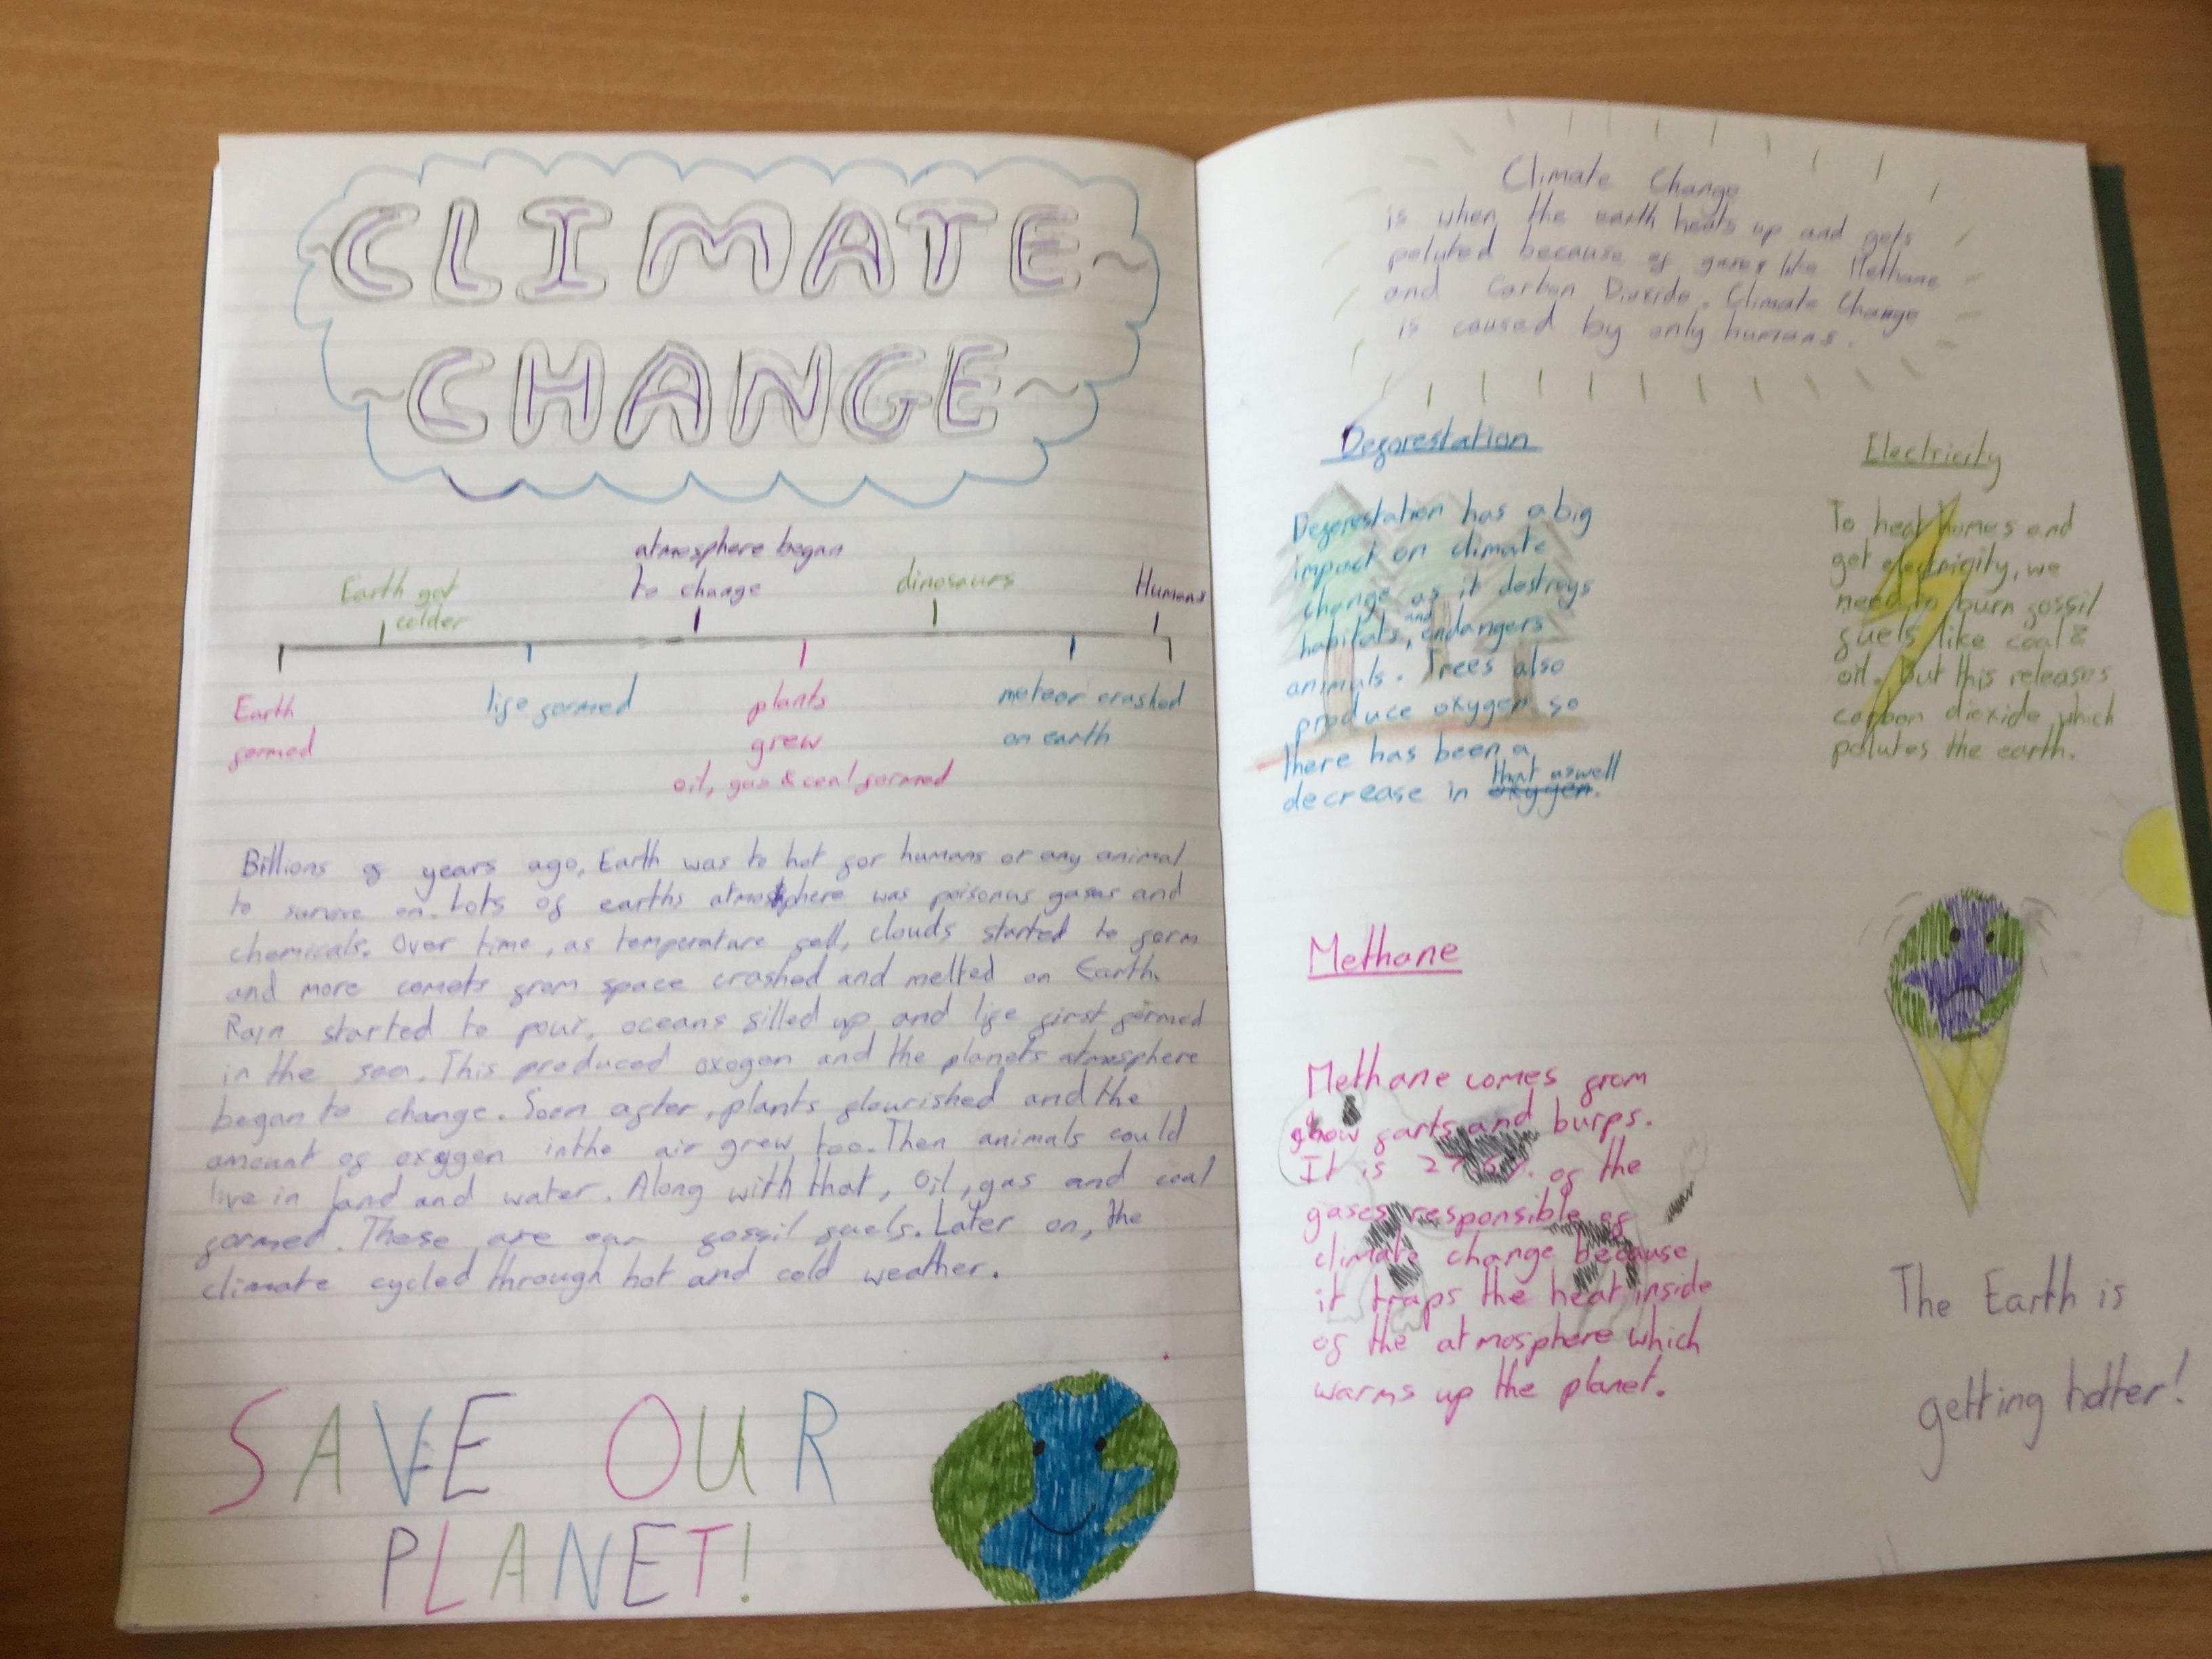 CLIMATE
~CHANGE~
atmosphere began
to change
Earth got
colder
dinosaurs
Humans
Earth
formed
life formed
plants
grew
oil, gas & coal formed
meteor crashed
on earth
Billions of years ago, Earth was to hot for humans or any animal
to survive on. Lots of earths atmosphere was poisonus gases and
chemicals. Over time, as temperature fell, clouds started to form
and more comets from space crashed and melted on Earth.
Rain started to pour, oceans filled up and life first formed
in the sea. This produced oxogen and the planets atmosphere
began to change. Soon after, plants flourished and the
amount of oxygen inthe air grew too. Then animals could
live in land and water. Along with that, oil, gas and coal
formed. These are our fossil fuels. Later on, the
climate cycled through hot and cold weather.
SAVE OUR
PLANET!
Climate Change
is when the earth heats up and gets
poluted because of gases like Methane
and Carbon Dioxide. Climate Change
is caused by only humans.
Deforestation
Deforestation has a big
impact on climate
change as it destroys
habitats, and endangers
animals. Trees also
produce oxygen so
there has been a
decrease in oxygen. that aswell
Electricity
To heat homes and
get electricity, we
need to burn fossil
fuels like coal &
oil. But this releases
carbon dioxide which
polutes the earth.
Methane
Methane comes from
cow farts and burps.
It is of the
gases responsible of
climate change because
it traps the heat inside
of the atmosphere which
warms up the planet.
The Earth is
getting hotter!